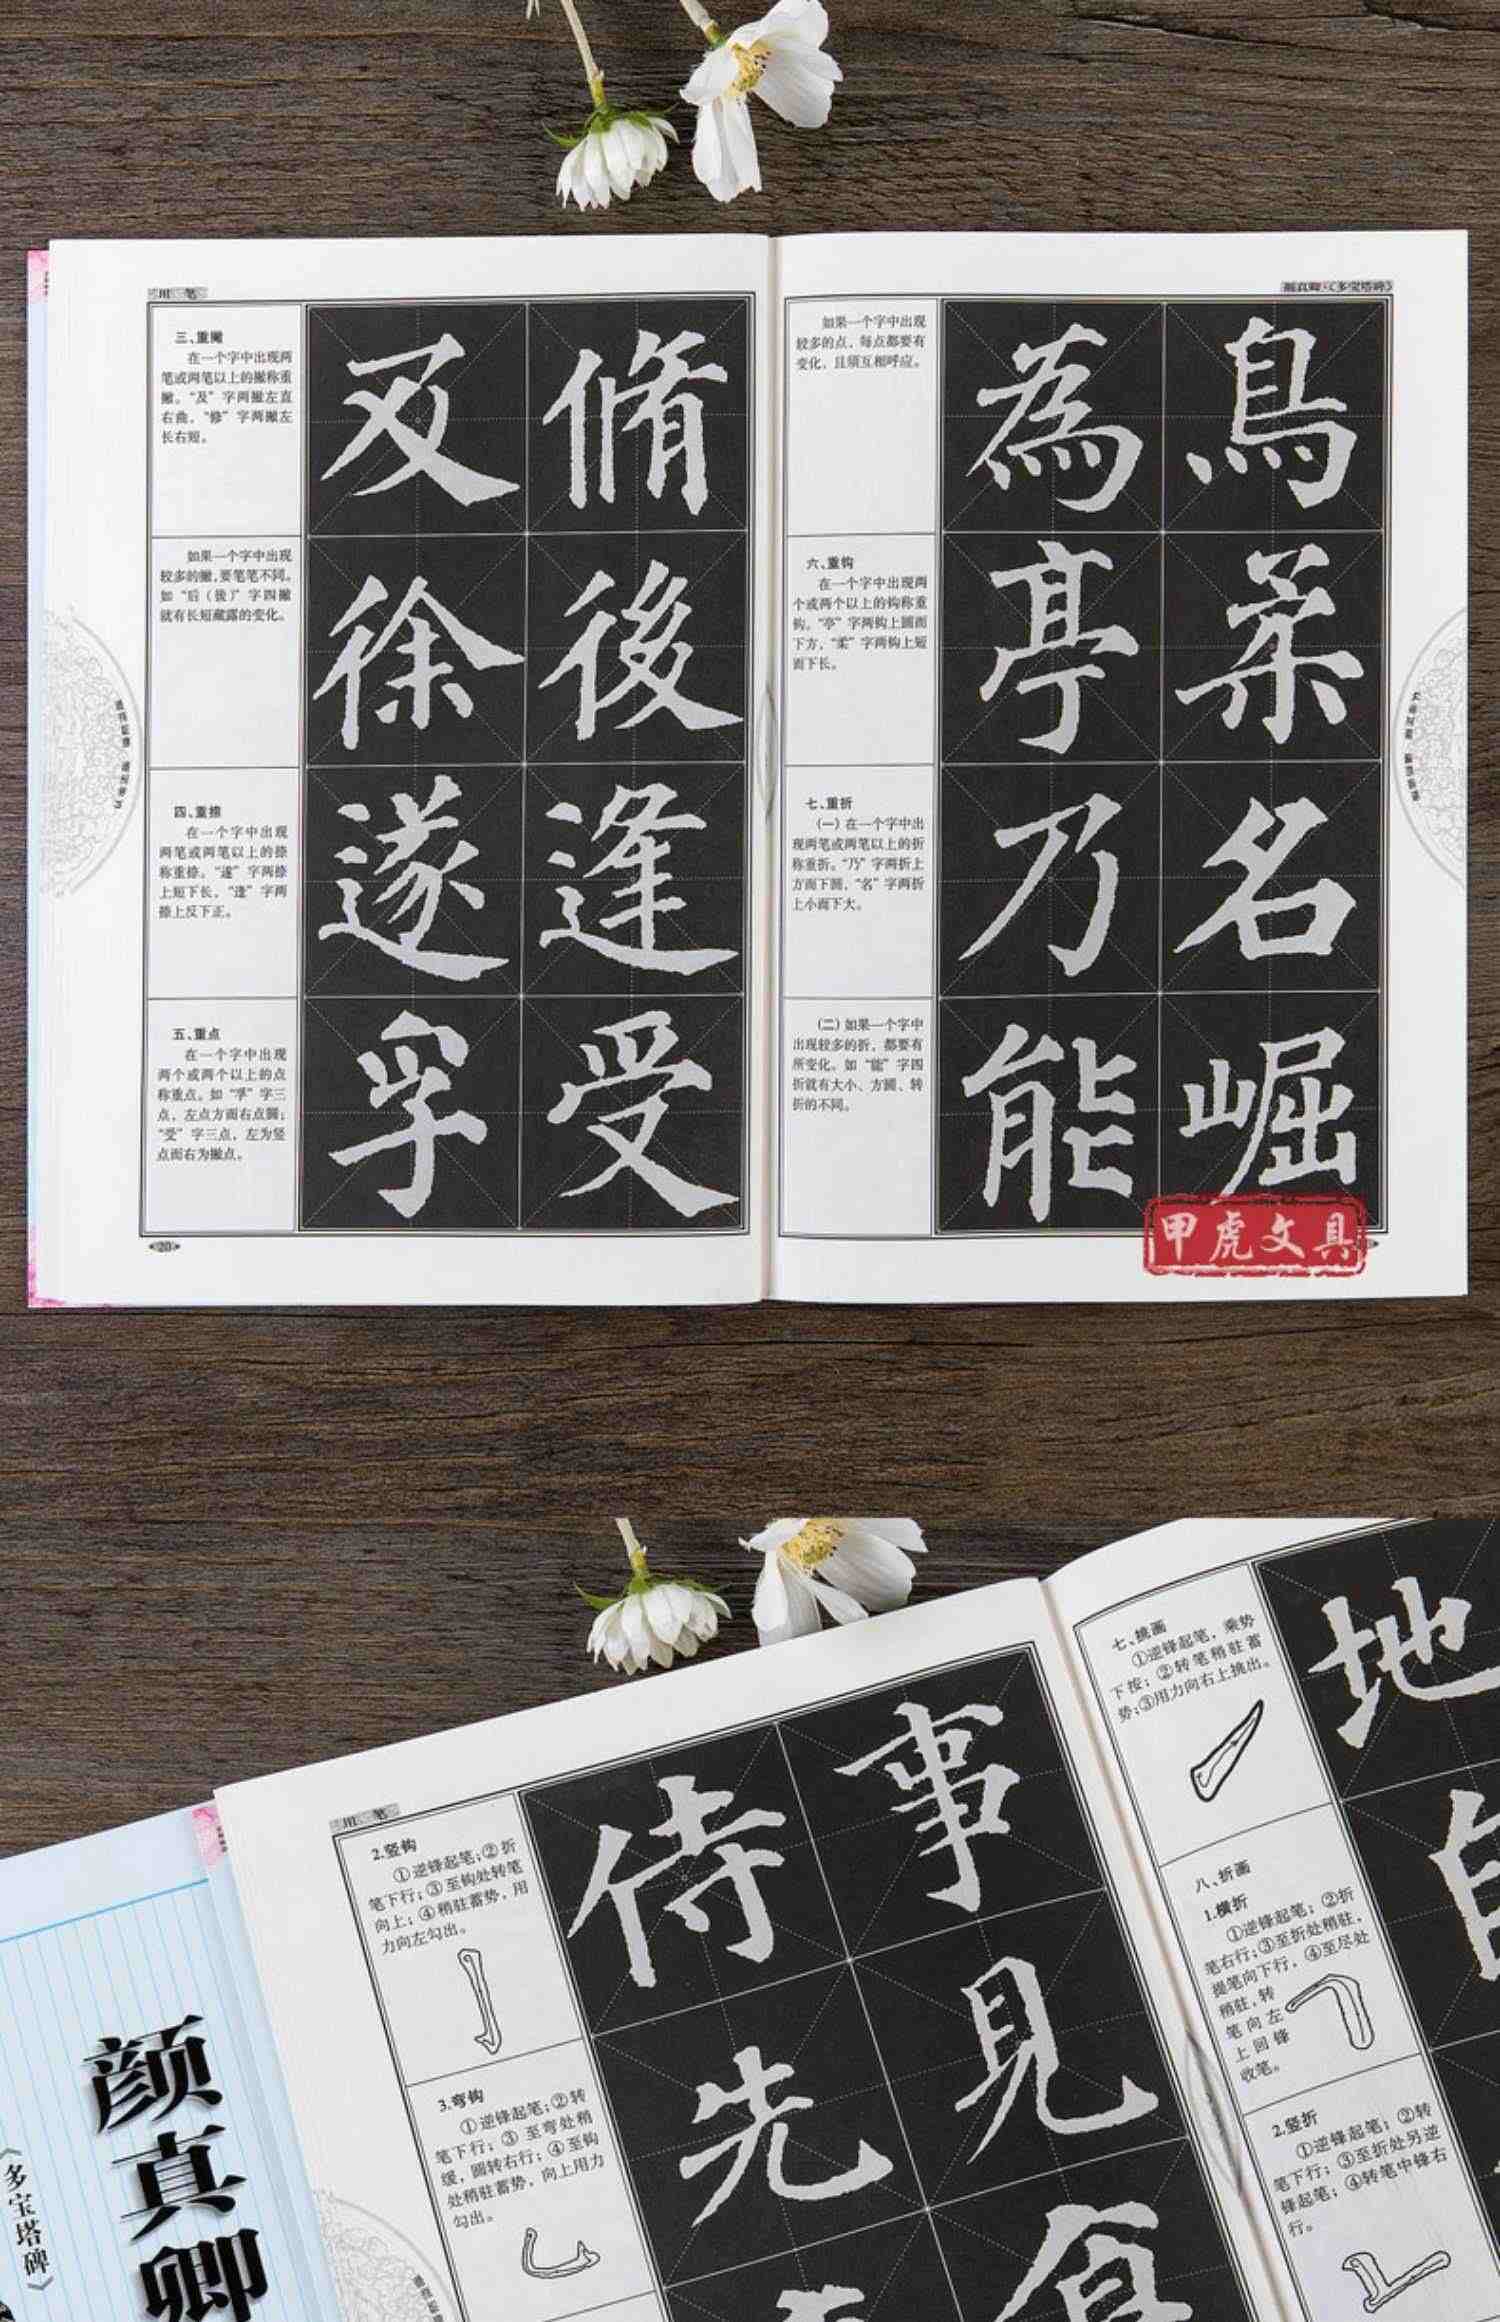 用 笔
三、重撇
在一个字中出现两
笔或两笔以上的撇称重
撇。“及”字两撇左直
右曲，“修”字两撇左
长右短。
及 脩
如果一个字中出现
较多的撇，要笔笔不同。
如“后（後）”字四撇
就有长短藏露的变化。
徐 後
四、重捺
在一个字中出现
两笔或两笔以上的捺
称重捺。“遂”字两捺
上短下长，“逢”字两
捺上反下正。
遂 逢
五、重点
在一个字中出现
两个或两个以上的点
称重点。如“孚”字三
点，左点方而右点圆；
“受”字三点，左为竖
点而右为撇点。
孚 受
20
颜真卿·《多宝塔碑》
如果一个字中出现
较多的点，每点都要有
变化，且须互相呼应。
為 鳥
六、重钩
在一个字中出现两
个或两个以上的钩称重
钩。“亭”字两钩上圆而
下方，“柔”字两钩上短
而下长。
亭 柔
七、重折
（一）在一个字中出
现两笔或两笔以上的折
称重折。“乃”字两折上
方而下圆，“名”字两折
上小而下大。
乃 名
（二）如果一个字中
出现较多的折，都要有
所变化。如“能”字四
折就有大小、方圆、转
折的不同。
能 崛
甲虎文具
用 笔
2.竖钩
①逆锋起笔；②折
笔下行；③至钩处转笔
向上；④稍驻蓄势，用
力向左勾出。
侍 事
3.弯钩
①逆锋起笔；②转
笔下行；③至弯处稍
缓，圆转右行；④至钩
处稍驻蓄势，向上用力
勾出。
先 見
七、挑画
①逆锋起笔，乘势
下按；②转笔稍驻蓄
势；③用力向右上挑出。
地
八、折画
1.横折
①逆锋起笔；②折
笔右行；③至折处稍驻，
提笔向下行，④至尽处
稍驻，转
笔向左
上回锋
收笔。
2.竖折
①逆锋起笔；②转
笔下行；③至折处另逆
锋起笔；④转笔中锋右
行。
颜真卿
《多宝塔碑》